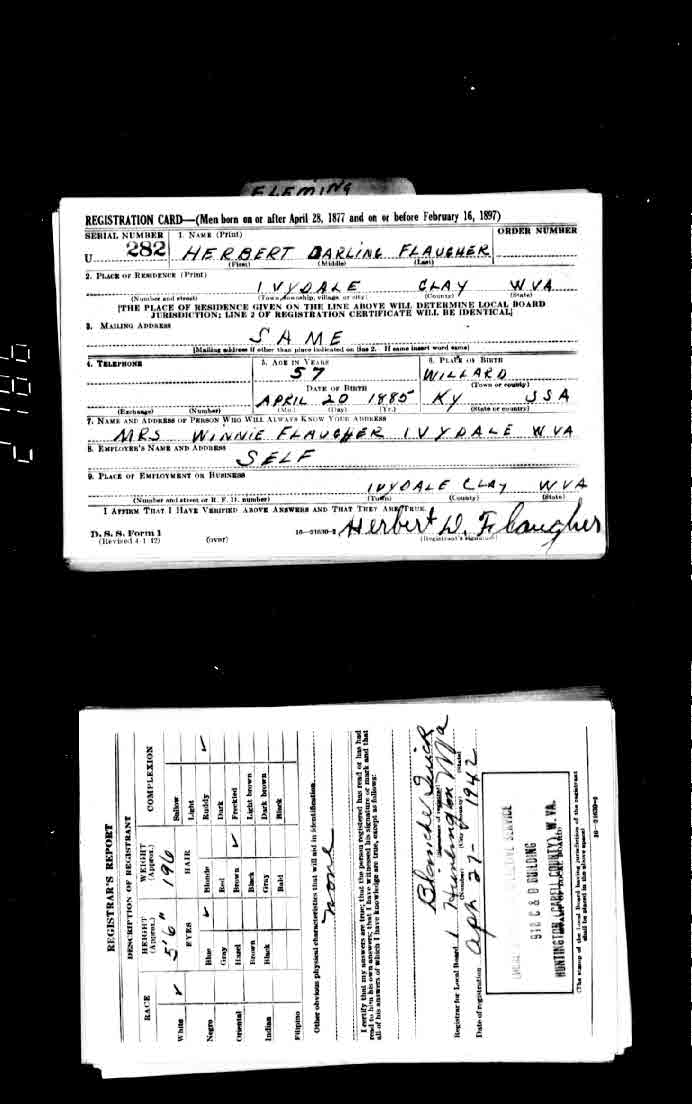 FLEMING
REGISTRATION CARD—(Men born on or after April 28, 1877 and on or before February 16, 1897)
SERIAL NUMBER 1. NAME (Print) ORDER NUMBER
U 282 HERBERT DARLING FLAUGHER
(First) (Middle) (Last)
2. PLACE OF RESIDENCE (Print)
IVYDALE CLAY W VA
(Number and street) (Town, township, village, or city) (County) (State)
[THE PLACE OF RESIDENCE GIVEN ON THE LINE ABOVE WILL DETERMINE LOCAL BOARD
JURISDICTION; LINE 2 OF REGISTRATION CERTIFICATE WILL BE IDENTICAL]
3. MAILING ADDRESS
SAME
[Mailing address if other than place indicated on line 2. If same insert word same]
4. TELEPHONE 5. AGE IN YEARS 6. PLACE OF BIRTH
57 WILLARD
DATE OF BIRTH (Town or county)
APRIL 20 1885 KY USA
(Exchange) (Number) (Mo.) (Day) (Yr.) (State or country)
7. NAME AND ADDRESS OF PERSON WHO WILL ALWAYS KNOW YOUR ADDRESS
MRS WINNIE FLAUGHER IVYDALE W VA
8. EMPLOYER'S NAME AND ADDRESS
SELF
9. PLACE OF EMPLOYMENT OR BUSINESS
IVYDALE CLAY W VA
(Number and street or R. F. D. number) (Town) (County) (State)
I AFFIRM THAT I HAVE VERIFIED ABOVE ANSWERS AND THAT THEY ARE TRUE.
Herbert D. Flaugher
D. S. S. Form 1
(Revised 4-1-42) (over) 16—21630-2 (Registrant's signature)
REGISTRAR'S REPORT
DESCRIPTION OF REGISTRANT
RACE HEIGHT (Approx.) WEIGHT (Approx.) COMPLEXION
White ✓ 5'6" 196 Sallow
EYES HAIR Light
Negro Blue ✓ Blonde Ruddy ✓
Gray Red Dark
Oriental Hazel Brown ✓ Freckled
Brown Black Light brown
Indian Black Gray Dark brown
Bald Black
Filipino
Other obvious physical characteristics that will aid in identification
none
I certify that my answers are true; that the person registered has read or has had
read to him his own answers; that I have witnessed his signature or mark and that
all of his answers of which I have knowledge are true, except as follows:
Registrar for Local Board Huntington
Date of registration Apr 27 - 1942
912 C & O BUILDING
HUNTINGTON (CABELL COUNTY), W. VA.
(The stamp of the Local Board having jurisdiction of the registrant
shall be placed in the above space)
16—21630-2